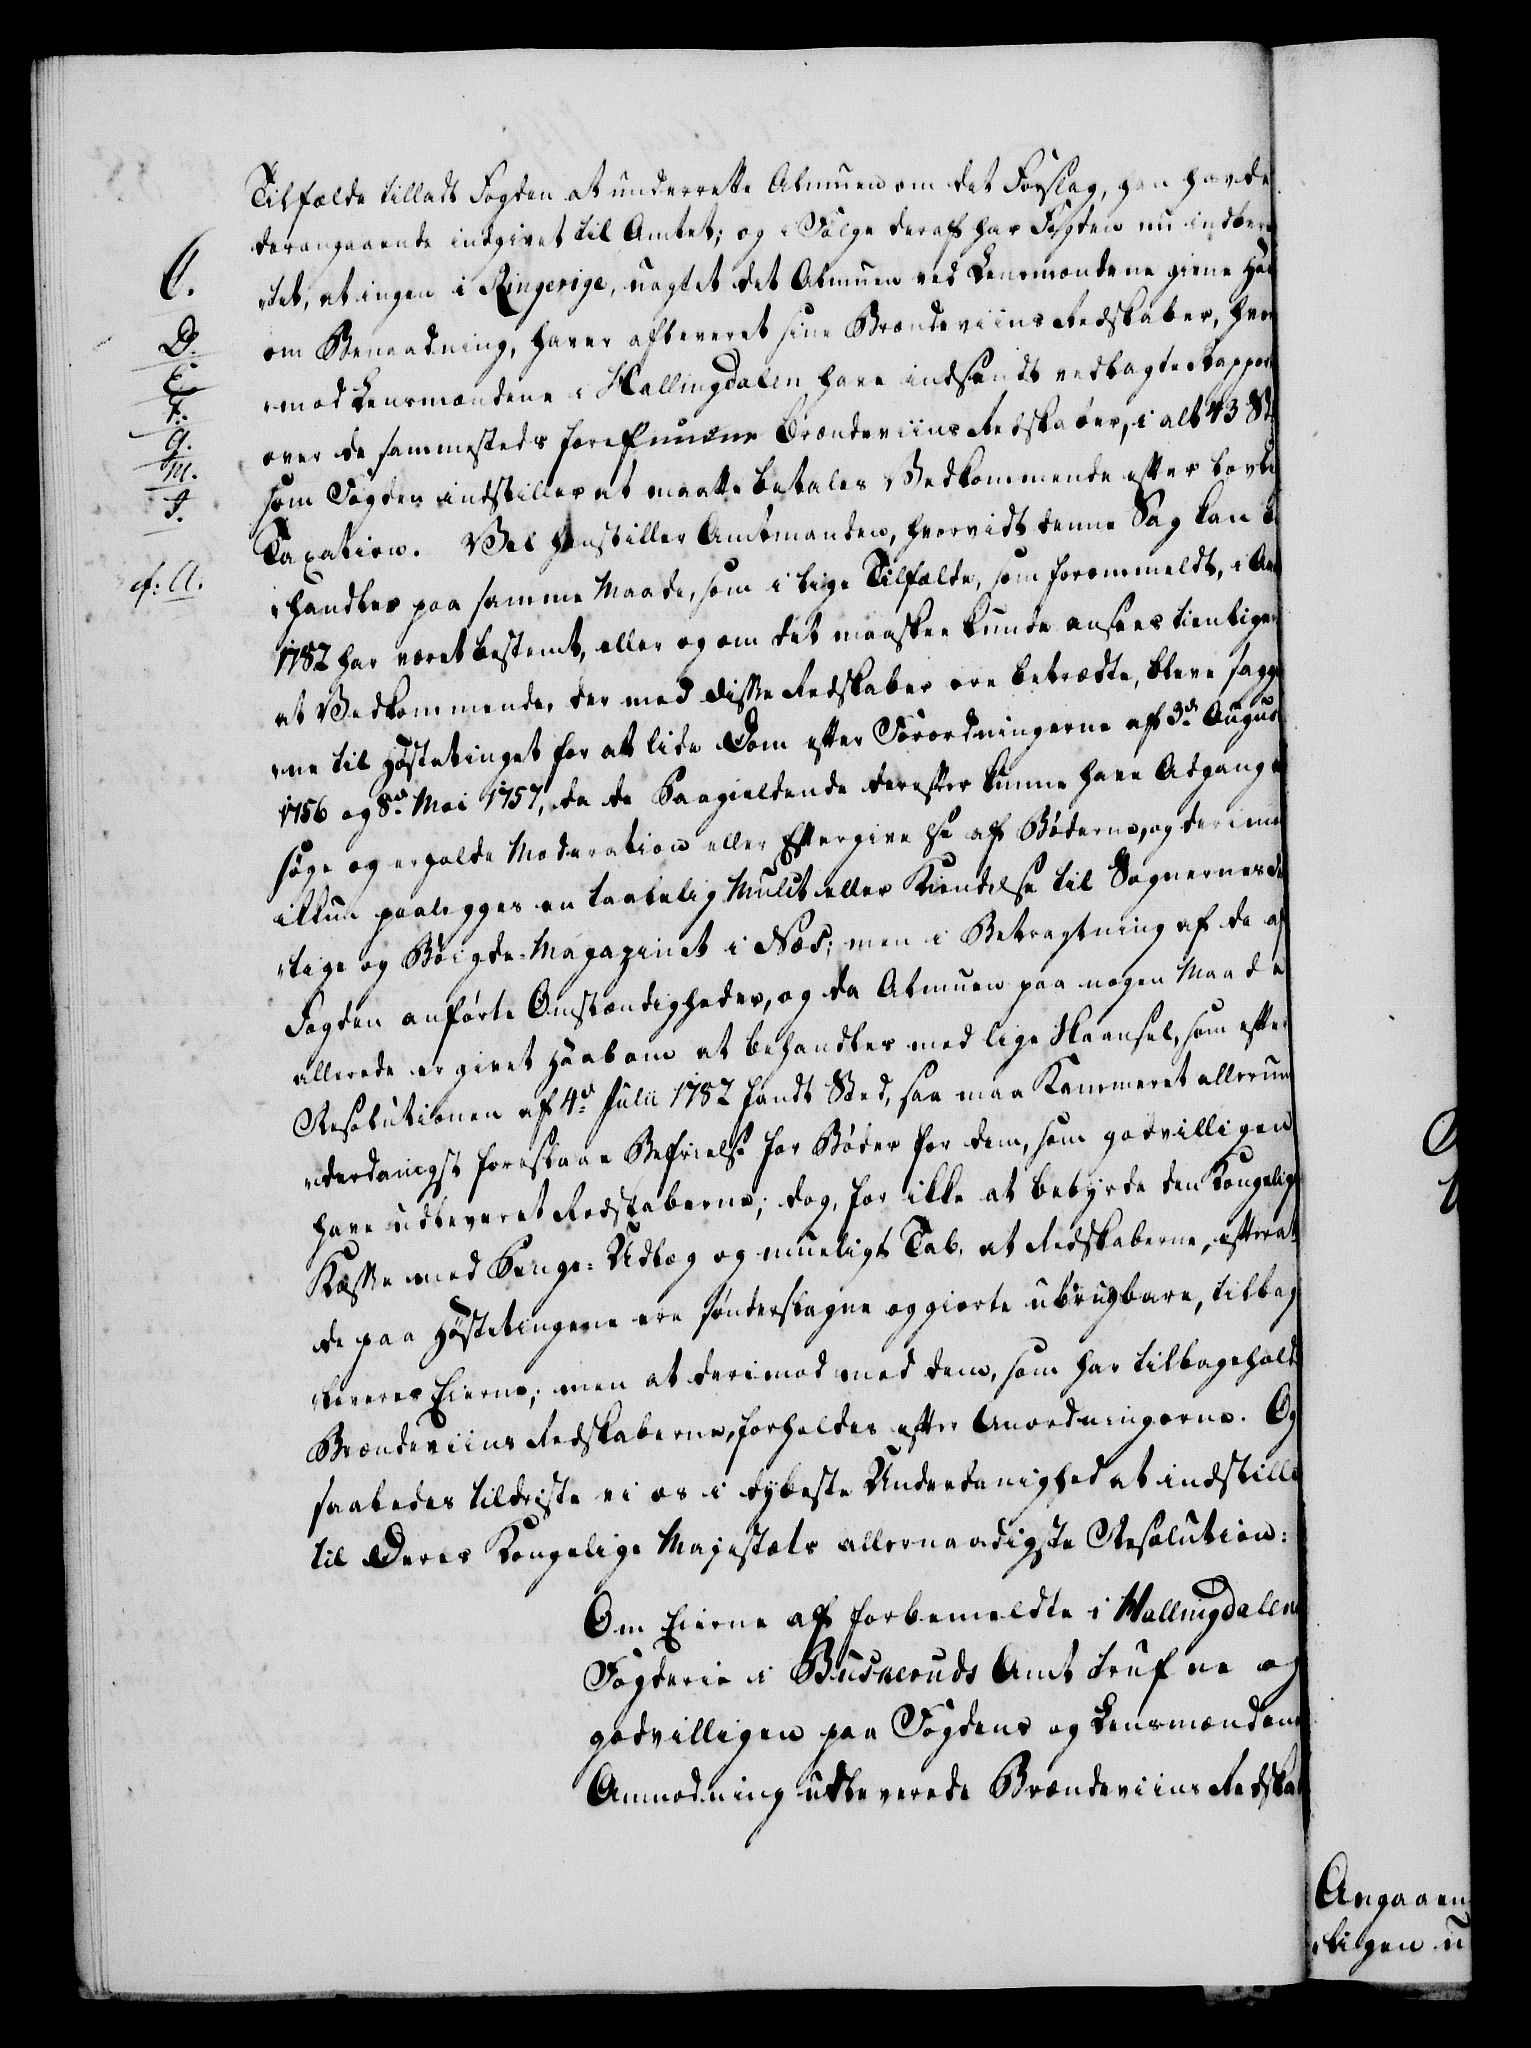 Tilfælde tilladt Fogden at underrette Almuen om det Forslag, han havde
derangaaende indgivet til Amtet; og i Følge deraf har Fogden nu indberet
C.
tet, at ingen i Ringerige, uagtet det Almuen ved Lensmændene givne Haab
om Benaadning, haver afleveret sine Brændeviins Redskaber, hvor
D.
imod Lensmændene i Hallingdalen have indsendt vedlagte Rapport
E.
F.
over de sammesteds forefundne Brændeviins Redskaber, i alt 43 St
G.
som Fogden indstiller at maatte betales Vedkommende efter lovlig
M.
I.
Taxation. Vel henstiller Amtmanden, hvorvidt denne Sag kan be
cf: A.
handles paa samme Maade, som i lige Tilfælde, som forommeldt, i Aar
1782 har været bestemt, eller og om det maaskee kunde ansees tienligere
at Vedkommende, der med disse Redskaber ere betrædte, bleve sagg
ne til Høstetinget for at lide Dom efter Forordningerne af 3de August
1756 og 8de Mai 1757, da de Saagieldende derefter kunne have Adgang at
søge og erholde Moderation eller Eftergivelse af Bøderne, og derimod
ikkun paalegges en taalelig Mulct eller Kiendelse til Sognernes Fat
tige og Bøigde-Magazinet i Næs; men i Betragtning af de af
Fogden anførte Omstændigheder, og da Almuen paa nogen Maade
allerede er givet Haab om at behandles med lige Skaansel, som efter
Resolutionen af 4de Julii 1782 fandt Sted, saa maa Kammeret allerun
derdanigst foreslaae Befrielse for Bøder for dem, som godvilligen
have udleveret Redskaberne; dog, for ikke at bebyrde den Kongelige
Kasse med Penge-Udlæg og mueligt Tab, at Redskaberne, efterat
de paa Høstetingene ere sønderslagne og giorte ubrugbare, tilbage
leveres Eierne; men at derimod med dem, som har tilbageholdt
Brændeviins Redskaberne, forholdes efter Anordningerne. Og
saaledes tildriste vi os i dybeste Underdanighed at indstille
til Deres Kongelige Majestæts allernaadigste Resolution:
Om Eierne af forbemeldte i Hallingdalens
Fogderie i Buskeruds Amt trufne og
godvilligen paa Fogdens og Lensmændenes
Anmodning udleverede Brændeviins Redskab
Angaaen
ligen u